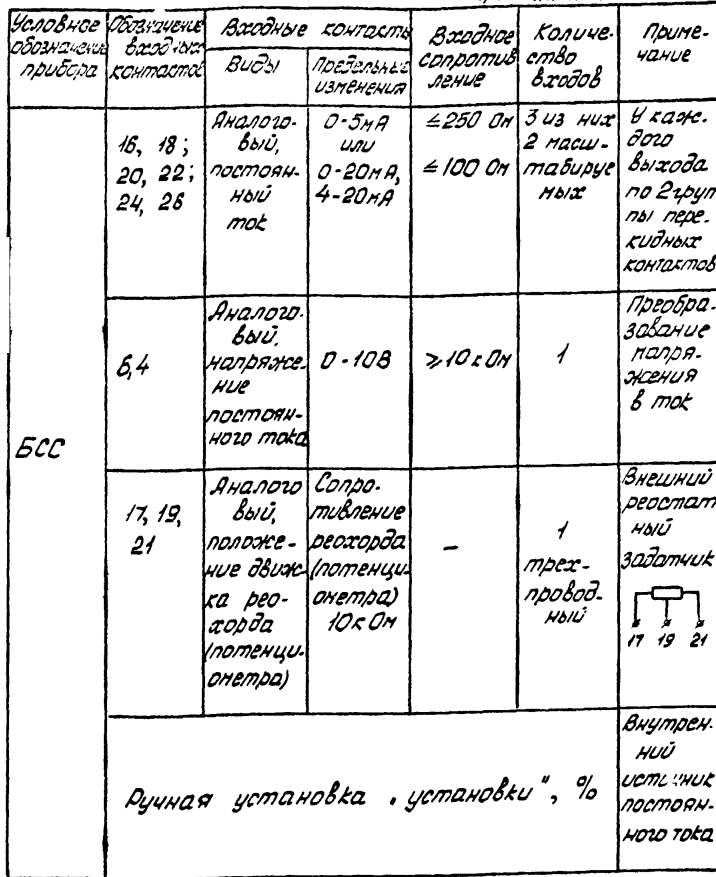 Условное обозначение прибора
Обозначение входных контактов
Входные контакты
Виды
Предельные изменения
Входное сопротивление
Количество входов
Примечание
БСС
16, 18;
20, 22;
24, 26
Аналого-
вый,
постоян-
ный
ток
0-5мА
или
0-20мА,
4-20мА
≤250 Ом
≤100 Ом
3 из них
2 масш-
табируе
мых
У каж-
дого
выхода
по 2груп
пы пере-
кидных
контактов
6,4
Аналого-
вый,
напряже-
ние
постоян-
ного тока
0-10В
≥10кОм
1
Преобра-
зование
напря-
жения
в ток
17, 19,
21
Аналого
вый,
положе-
ние движ-
ка рео-
хорда
(потенци-
ометра)
Сопро-
тивление
реохорда
(потенци-
ометра)
10кОм
–
1
трех-
провод-
ный
Внешний
реостат
ный
задатчик
17 19 21
Ручная установка „установки", %
Внутрен-
ний
источник
постоян-
ного тока